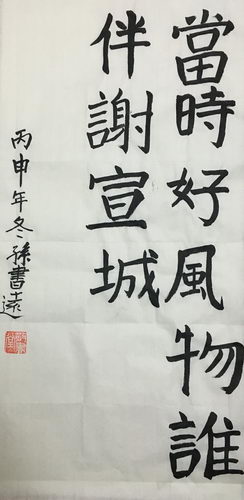 當時好風物誰
伴謝宣城
丙申年冬孫書遠